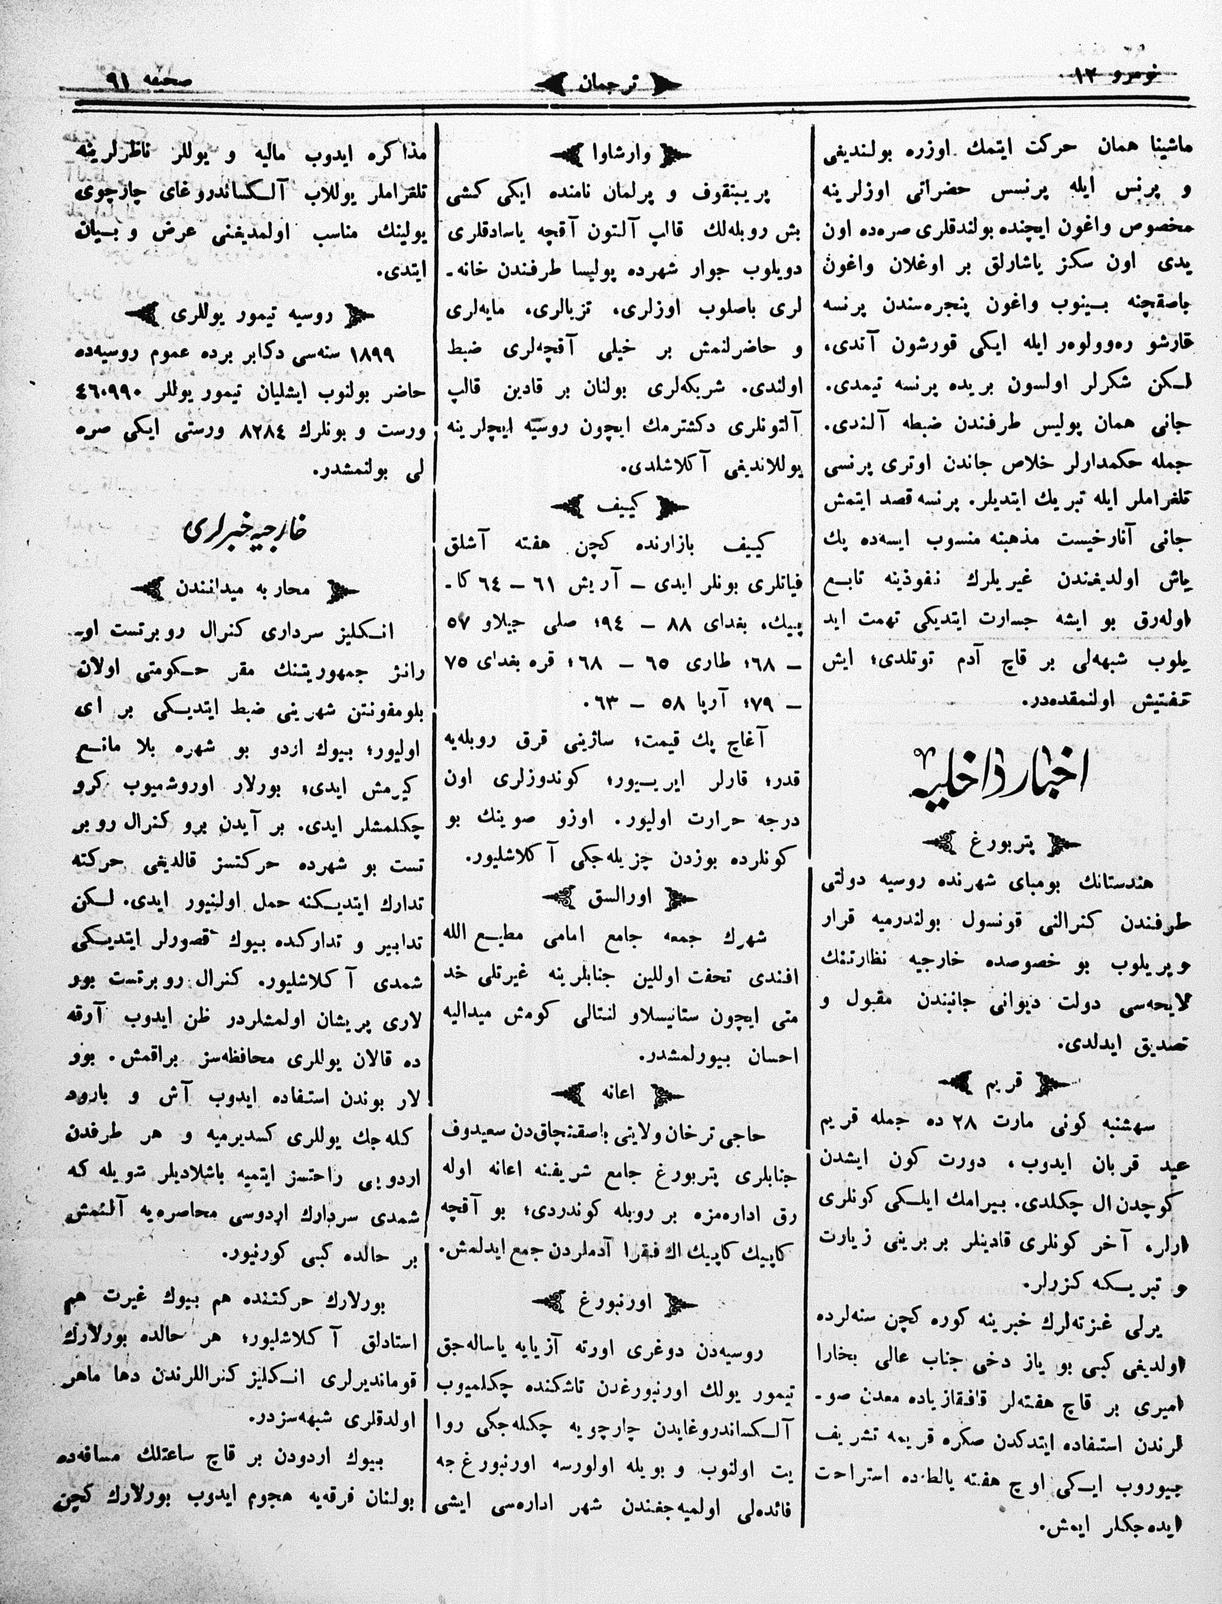 نومرو ١٢
ترجمان
صحیفه ٩١
ماشینا همان حرکت ایتمك اوزره بولندیغی
و پرنس ایله پرنسس حضراتی اوزلرینه
مخصوص واغون ایچنده بولندقلری صره‌ده اون
یدی اون سکز یاشارلق بر اوغلان واغون
باصقچنه بینوب واغون پنجره‌سندن پرنسه
قارشو ره‌وولوه‌ر ایله ایکی قورشون آتدی،
لکن شکرلر اولسون بریده پرنسه تیمدی.
جانی همان پولیس طرفندن ضبطه آلندی.
جمله حکمدارلر خلاص جاندن اوتری پرنسی
تلغراملر ایله تبریك ایتدیلر. پرنسه قصد ایتمش
جانی آنارخیست مذهبنه منسوب ایسه‌ده پك
یاش اولدیغندن غیریلرك نفوذینه تابع
اوله‌رق بو ایشه جسارت ایتدیکی تهمت اید
یلوب شبهه‌لی بر قاچ آدم توتلدی؛ ایش
تفتیش اولنمقده‌در.
اخبار داخلیه
پتربورغ
هندستانك بومبای شهرنده روسیه دولتی
طرفندن کنرالنی قونسول بولندرمیه قرار
ویریلوب بو خصوصده خارجیه نظارتنك
لایحه‌سی دولت دیوانی جانبندن مقبول و
تصدیق ایدلدی.
قریم
سه‌شنبه کونی مارت ٢٨ ده جمله قریم
عید قربان ایدوب، دورت کون ایشدن
کوچدن ال چکلدی. بیرامك ایلکی کونلری
ارلره آخر کونلری قادینلر بربرینی زیارت
و تبریکه کزرلر.
یرلی غزته‌لرك خبرینه کوره کچن سنه‌لرده
اولدیغی کبی بو یاز دخی جناب عالی بخارا
امیری بر قاچ هفته‌لر قافقازیاده معدن صو-
لرندن استفاده ایتدکدن صکره قریمه تشریف
بیوروب ایکی اوچ هفته یالطه‌ده استراحت
ایده‌جکلر ایمش.
وارشاوا
پریبتقوف و پرلمان نامنده ایکی کشی
بش روبله‌لك قالپ آلتون آقچه یاسادقلری
دویلوب جوار شهرده پولیسا طرفندن خانه-
لری باصلوب اوزلری، تزیالری، مایه‌لری
و حاضرلنمش بر خیلی آقچه‌لری ضبط
اولندی. شریکه‌لری بولنان بر قادین قالپ
آلتونلری دکشترمك ایچون روسیه ایچلرینه
یوللاندیغی آکلاشلدی.
کییف
کییف بازارنده کچن هفته آشلق
فیاتلری بونلر ایدی – آریش ٦١ – ٦٤ کا-
پیك، بغدای ٨٨ – ٩٤؛ صلی جیلاو ٥٧
– ٦٨؛ طاری ٦٥ – ٦٨؛ قره بغدای ٧٥
– ٧٩؛ آرپا ٥٨ – ٦٣.
آغاچ پك قیمت؛ ساژینی قرق روبله‌یه
قدر؛ قارلر ایرییور؛ کوندوزلری اون
درجه حرارت اولیور. اوزو صوینك بو
کونلرده بوزدن چزیله‌جکی آکلاشلیور.
اورالسق
شهرك جمعه جامع امامی مطیع الله
افندی تحفت اوللین جنابلرینه غیرتلی خد
متی ایچون ستانیسلاو لنتالی کومش میدالیه
احسان بیورلمشدر.
اعانه
حاجی ترخان ولایتی باصقنچاق‌دن سعیدوف
جنابلری پتربورغ جامع شریفنه اعانه اوله
رق اداره‌مزه بر روبله کوندردی؛ بو آقچه
کاپیك کاپیك اك فقرا آدملردن جمع ایدلمش.
اورنبورغ
روسیه‌دن دوغری اورته آزیایه یاساله‌جق
تیمور یولك اورنبورغدن تاشکنده چکلمیوب
آلکساندروغایدن چارچویه چکله‌جکی روا
یت اولنوب و بویله اولورسه اورنبورغ‌جه
فائده‌لی اولمیه‌جغندن شهر اداره‌سی ایشی
مذاکره ایدوب مالیه و یوللر ناظرلرینه
تلغراملر یوللاب آلکساندروغای چارچوی
یولینك مناسب اولمدیغنی عرض و بیان
ایتدی.
روسیه تیمور یوللری
١٨٩٩ سنه‌سی دکابر برده عموم روسیه‌ده
حاضر بولنوب ایشلیان تیمور یوللر ٤٦٠٩٩٠
ورست و بونلرك ٨٢٨٤ ورستی ایکی صره
لی بولنمشدر.
خارجیه خبرلری
محاربه میداننندن
انکلیز سرداری کنرال روبرتست او-
رانژ جمهوریتنك مقر حکومتی اولان
بلومفونتن شهرینی ضبط ایتدیکی بر ای
اولیور؛ بیوك اردو بو شهره بلا مانع
کیرمش ایدی؛ بورلار اوروشمیوب کرو
چکلمشلر ایدی. بر آیدن برو کنرال روبر
تست بو شهرده حرکتسز قالدیغی حرکته
تدارك ایتدیکنه حمل اولنیور ایدی. لکن
تدابیر و تدارکده بیوك قصورلر ایتدیکی
شمدی آکلاشلیور. کنرال روبرتست بوو
لاری پریشان اولمشلردر ظن ایدوب آرقه
ده قالان یوللری محافظه‌سز براقمش. بوو
لار بوندن استفاده ایدوب آش و بارود
کله‌جك یوللری کسدیرمیه و هر طرفدن
اردویی راحتسز ایتمیه باشلادیلر شویله که
شمدی سردارك اردوسی محاصره‌یه آلنمش
بر حالده کبی کورنیور.
بورلارك حرکتنده هم بیوك غیرت هم
استادلق آکلاشلیور؛ هر حالده بورلارك
قوماندیرلری انکلیز کنراللرندن دها ماهر
اولدقلری شبهه‌سزدر.
بیوك اردودن بر قاچ ساعتلك مسافه‌ده
بولنان فرقه‌یه هجوم ایدوب بورلارك کچن